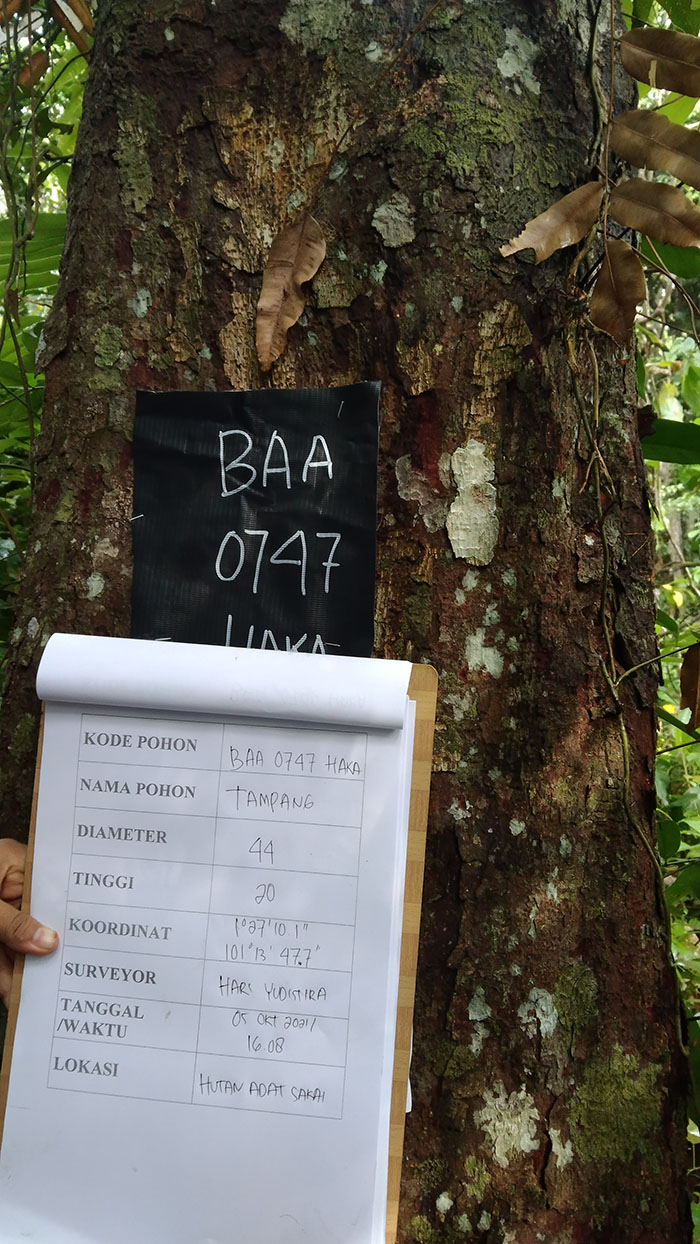 BAA
0747
HAKA
KODE POHON BAA 0747 HAKA
NAMA POHON TAMPANG
DIAMETER 44
TINGGI 20
KOORDINAT 1°27'10.1"
101°13' 47.7"
SURVEYOR HARI YUDISTIRA
TANGGAL 05 OKT 2021/
/WAKTU 16.08
LOKASI HUTAN ADAT SAKAI